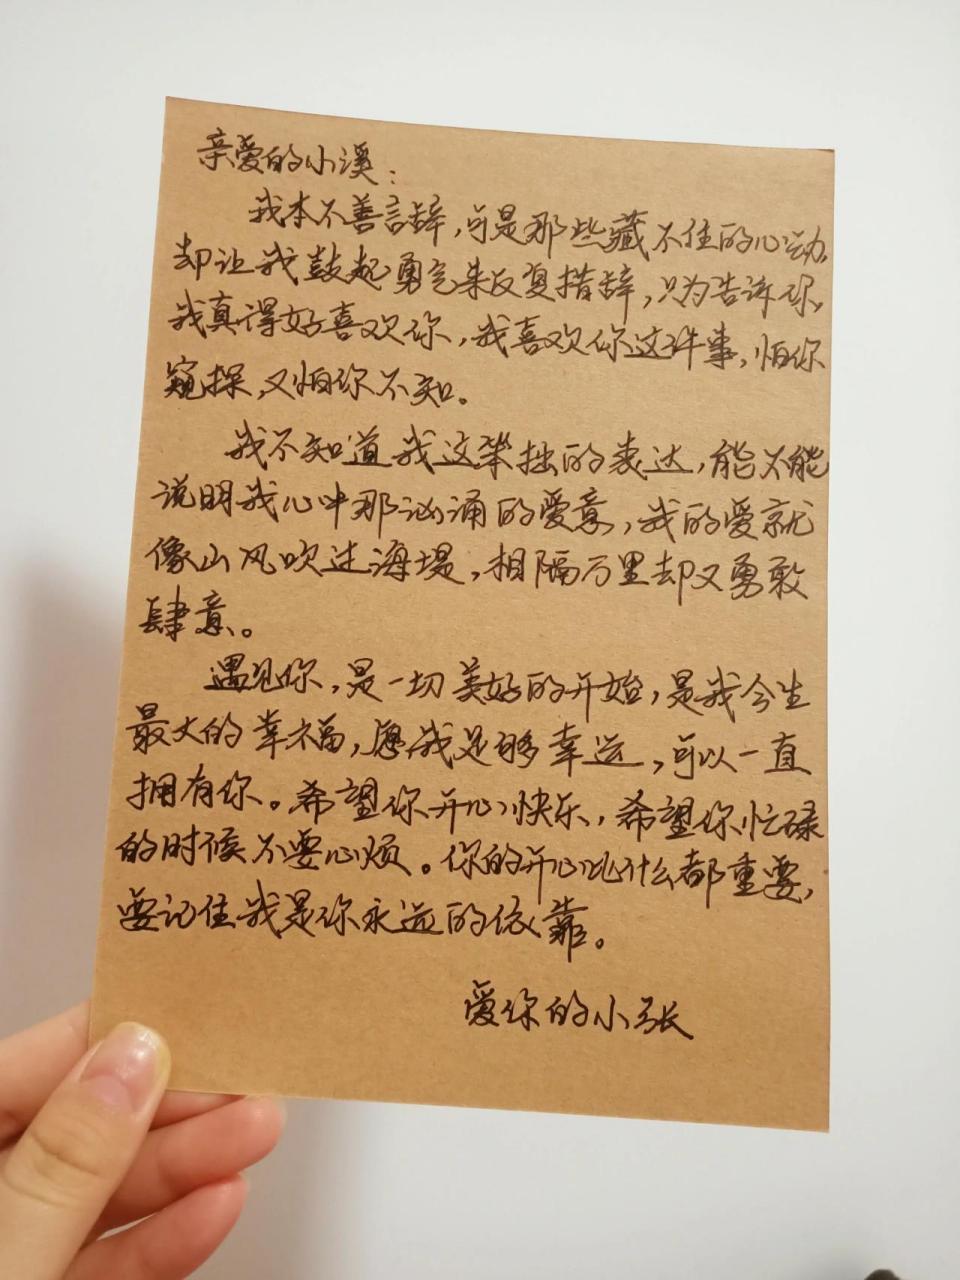 亲爱的小溪：
我本不善言辞，可是那些藏不住的心动，
却让我鼓起勇气来反复措辞，只为告诉你，
我真得好喜欢你，我喜欢你这件事，怕你
窥探，又怕你不知。
我不知道我这笨拙的表达，能不能
说明我心中那汹涌的爱意，我的爱就
像山风吹过海堤，相隔万里却又勇敢
肆意。
遇见你，是一切美好的开始，是我今生
最大的幸福，愿我足够幸运，可以一直
拥有你。希望你开心快乐，希望你忙碌
的时候不要心烦。你的开心比什么都重要，
要记住我是你永远的依靠。
爱你的小张